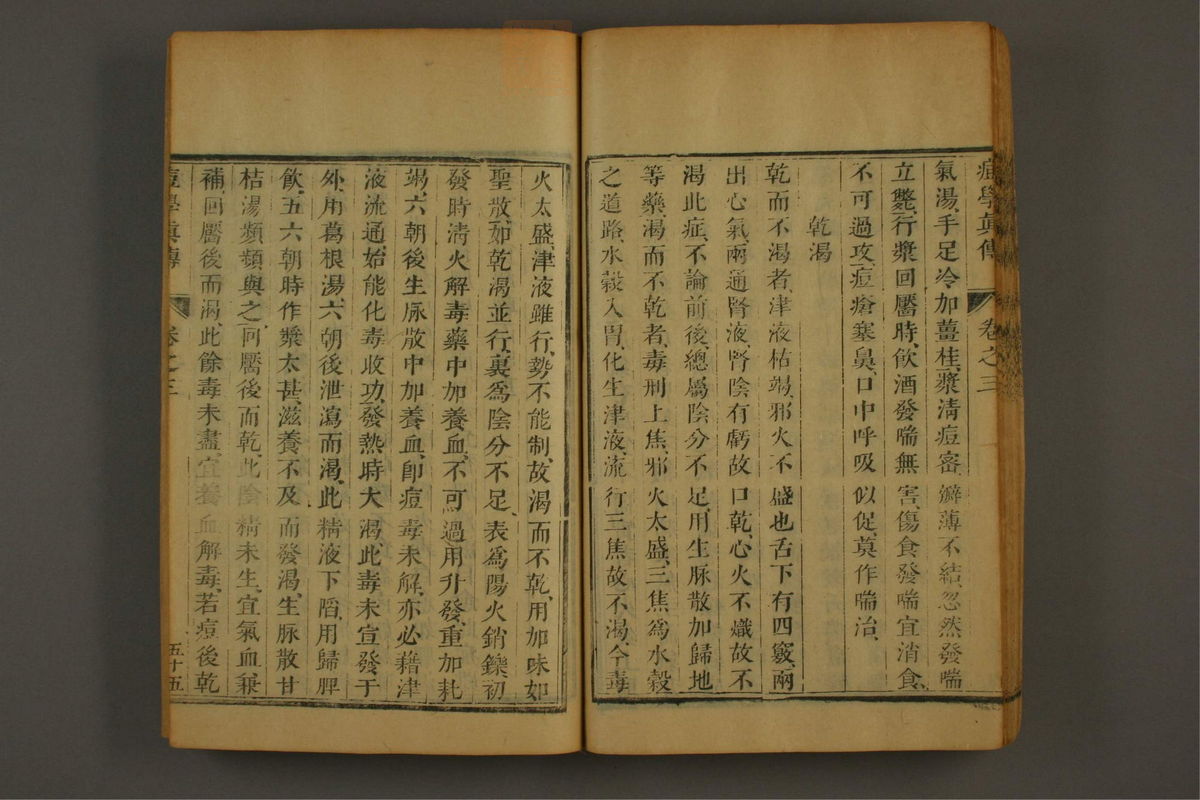 痘學真傳 卷之三
氣湯、手足冷加薑桂、漿清痘密癬薄不結、忽然發喘
立斃、行漿回靨時、飲酒發喘無害、傷食發喘宜消食、
不可過攻、痘瘡塞鼻、口中呼吸似促、莫作喘治、
乾渴
乾而不渴者、津液枯竭、邪火不盛也舌下有四竅、兩
出心氣、兩通腎液、腎陰有虧故口乾、心火不熾故不
渴此症、不論前後、總屬陰分不足、用生脉散加歸地
等藥、渴而不乾者、毒刑上焦、邪火太盛、三焦爲水穀
之道路、水穀入胃、化生津液、流行三焦故不渴、今毒
火太盛、津液雖行、勢不能制、故渴而不乾、用加味如
聖散、如乾渴並行、裏爲陰分不足、表爲陽火銷鑠、初
發時淸火解毒藥中加養血、不可過用升發、重加耗
竭、六朝後生脉散中加養血、卽痘毒未解、亦必藉津
液流通、始能化毒收功、發熱時大渴、此毒未宣發于
外、用葛根湯、六朝後泄瀉而渴、此精液下陷、用歸脾
飮、五六朝時作漿太甚、滋養不及而發渴、生脉散甘
桔湯頻頻與之、回靨後而乾、此陰精未生、宜氣血兼
補、回靨後而渴、此餘毒未盡、宜養血解毒、若痘後乾
痘學真傳 卷之三 五十五